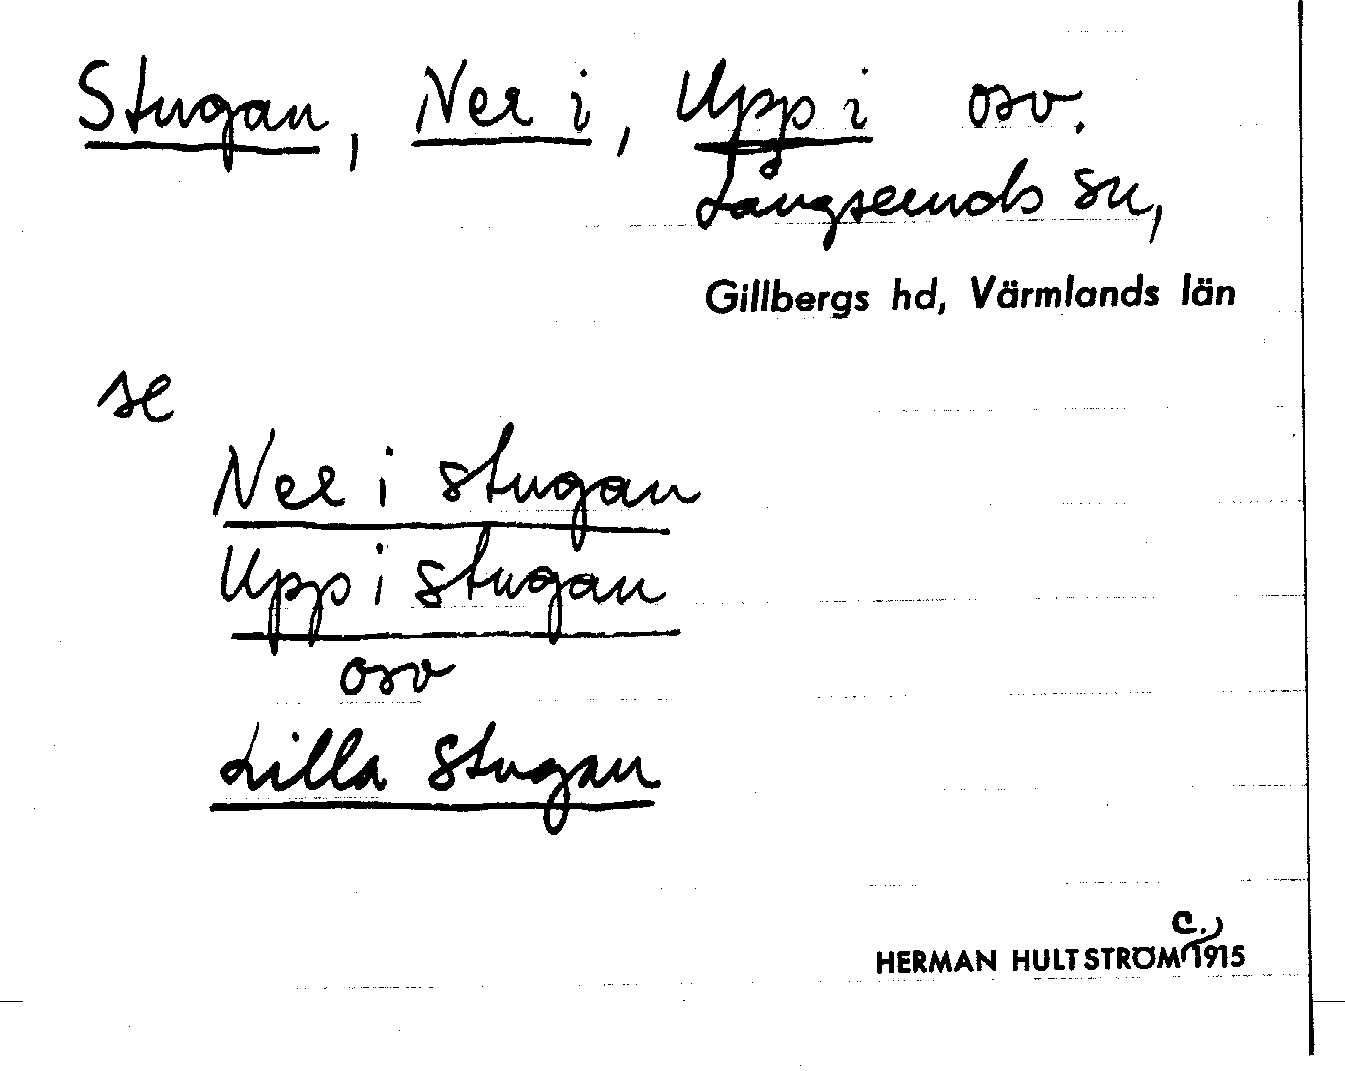 Stugan, Ner i, Upp i osv.
Långseruds sn,
Gillbergs hd, Värmlands län
se
Ner i stugan
Upp i stugan
osv
Lilla stugan
c.
HERMAN HULTSTRÖM 1915